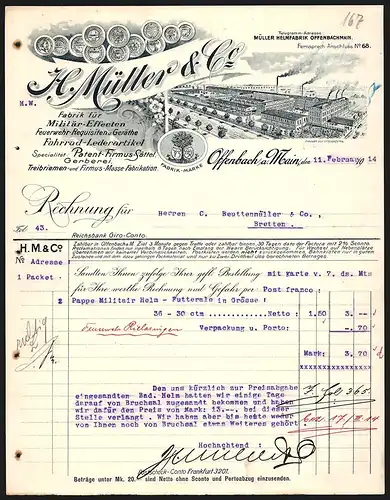 167
Telegramm-Adresse:
MÜLLER HELMFABRIK OFFENBACHMAIN.
Fernsprech Anschluss No 68.
H. Müller & Co
M.W.
Fabrik für
Militär-Effecten
Feuerwehr-Requisiten u. Geräthe
Fahrrad-Lederartikel
Specialität: Patent-Firmus-Sattel.
Gerberei.
Treibriemen und Firmus-Masse-Fabrikation.
FABRIK-MARKE
Offenbach a/Main, den 11.Februar 1914
Rechnung für
Herren C. Beuttenmüller & Co.,
Bretten.
Fol. 43.
Reichsbank Giro-Conto.
H.M.&Co
Zahlbar in Offenbach a.M. Ziel 3 Monate gegen Tratte oder zahlbar binnen 30 Tagen dato der Factura mit 2% Sconto.
No Adresse
Sandten Ihnen zufolge Ihrer gefl. Bestellung mit Karte v.7. ds. Mts
1 Packet
für Ihre werthe Rechnung und Gefahr per Post franco:
2 Pappe Militair Helm - Futterale in Grösse:
36 - 30 ctm . . . . . . . Netto: 1.50 3. --
Verpackung u. Porto: --. 70
Mark: 3. 70
xxxxxxxxxxxxxx
Den uns kürzlich zur Preisabgabe
eingesandten Bad. Helm hatten wir einige Tage
darauf von Bruchsal zugesandt bekommen und haben
wir dafür den Preis von Mark: 13.--. bei dieser
Stelle verlangt. Wir haben aber bis heute weder
von Ihnen noch von Bruchsal etwas Weiteres gehört.
365
Hochachtend:
Postscheck-Conto Frankfurt 3201.
Beträge unter Mk. 20.- sind Netto ohne Sconto und Portoabzug einzusenden.